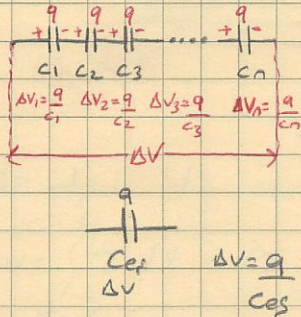 q q q q
+ - + - + - + -
C1 C2 C3 ..... Cn
ΔV1=q/C1 ΔV2=q/C2 ΔV3=q/C3 ΔVn=q/Cn
ΔV
q
Ceş
ΔV
ΔV=q/Ceş